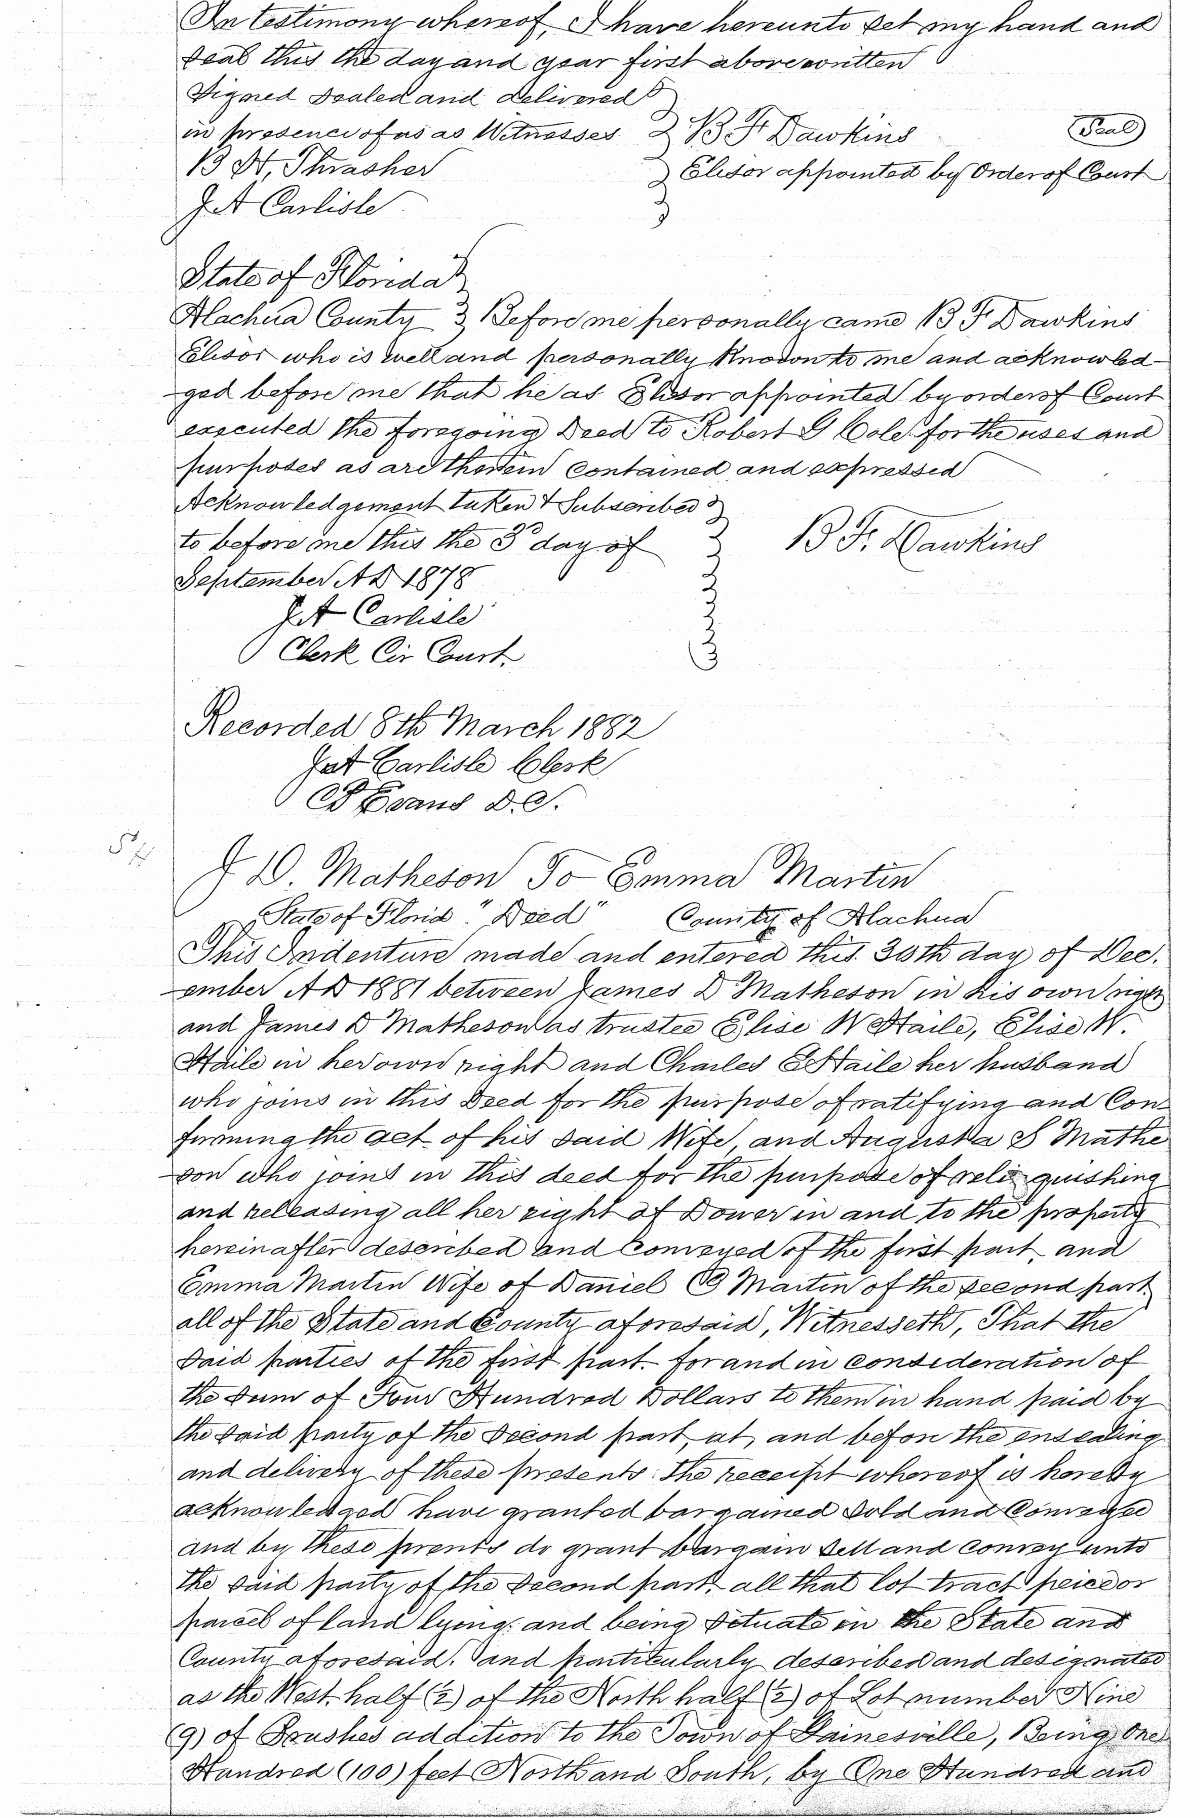 In testimony whereof, I have hereunto set my hand and
seal this the day and year first above written
Signed sealed and delivered
in presence of us as Witnesses B F Dawkins (Seal)
B H, Thrasher Elisor appointed by Order of Court
J A Carlisle
State of Florida
Alachua County Before me personally came B F Dawkins
Elisor who is well and personally Known to me and acknowled-
ged before me that he as Elisor appointed by order of Court
executed the foregoing Deed to Robert G Cole for the uses and
purposes as are therein contained and expressed
Acknowledgement taken & Subscribed
to before me this the 3d day of B. F. Dawkins
September A D 1878
J A Carlisle
Clerk Cir Court.
Recorded 8th March 1882
J A Carlisle Clerk
C P Evans D.C.
J D. Matheson To Emma Martin
State of Florid "Deed" County of Alachua
This Indenture made and entered this 30th day of Dec.
ember A D 1881 between James D Matheson in his own right
and James D Matheson as trustee Elise W Haile, Elise W.
Haile in her own right and Charles E Haile her husband
who joins in this Deed for the purpose of ratifying and Con-
firming the act of his said Wife, and Augusta S Mathe
son who joins in this deed for the purpose of reli quishing
and releasing all her right of Dower in and to the property
hereinafter described and Conveyed of the first part, and
Emma Martin Wife of Daniel Martin of the second part
all of the State and County aforesaid, Witnesseth, That the
said parties of the first part for and in consideration of
the sum of Four Hundred Dollars to them in hand paid by
the said party of the second part, at, and before the ensealing
and delivery of these presents the receipt whereof is hereby
acknowledged have granted bargained sold and Conveyed
and by these prents do grant bargain sell and convey unto
the said party of the second part, all that lot tract peice or
parcel of land lying and being situate in the State and
County aforesaid. and particularly described and designated
as the West half (1/2) of the North half (1/2) of Lot number Nine
(9) of Brushes addition to the Town of Gainesville, Being One
Hundred (100) feet North and South, by One Hundred and